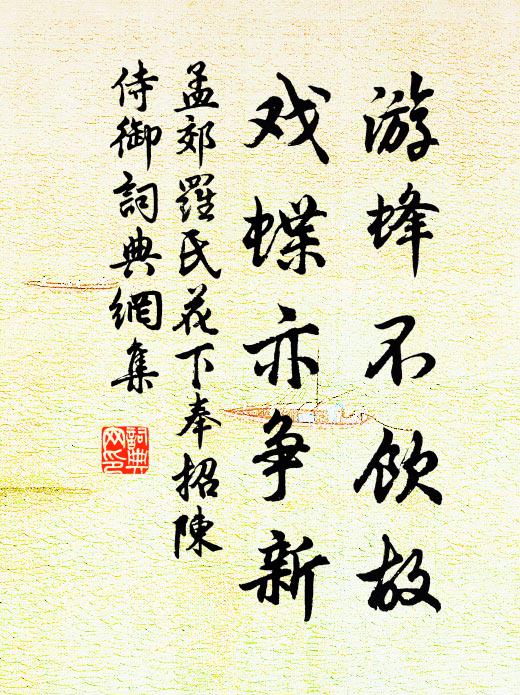 游蜂不饮故
戏蝶亦争新
孟郊羅氏花下奉招陳
侍御詞典網集
詞典
网印